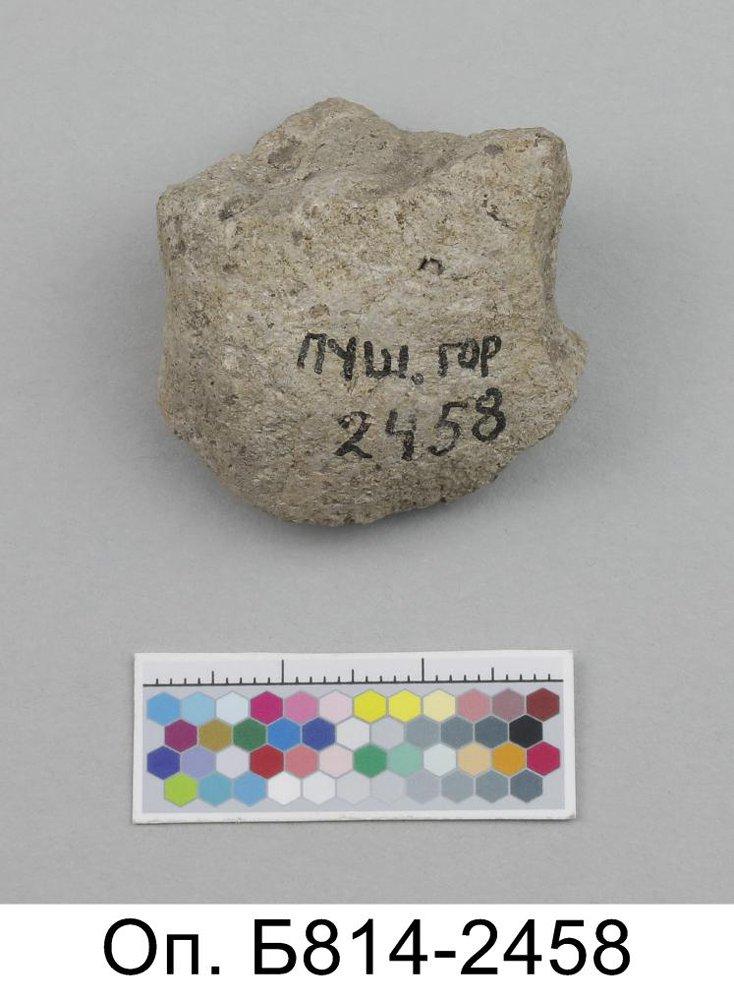 п
ПУШ. ГОР
2458
Оп. Б814-2458